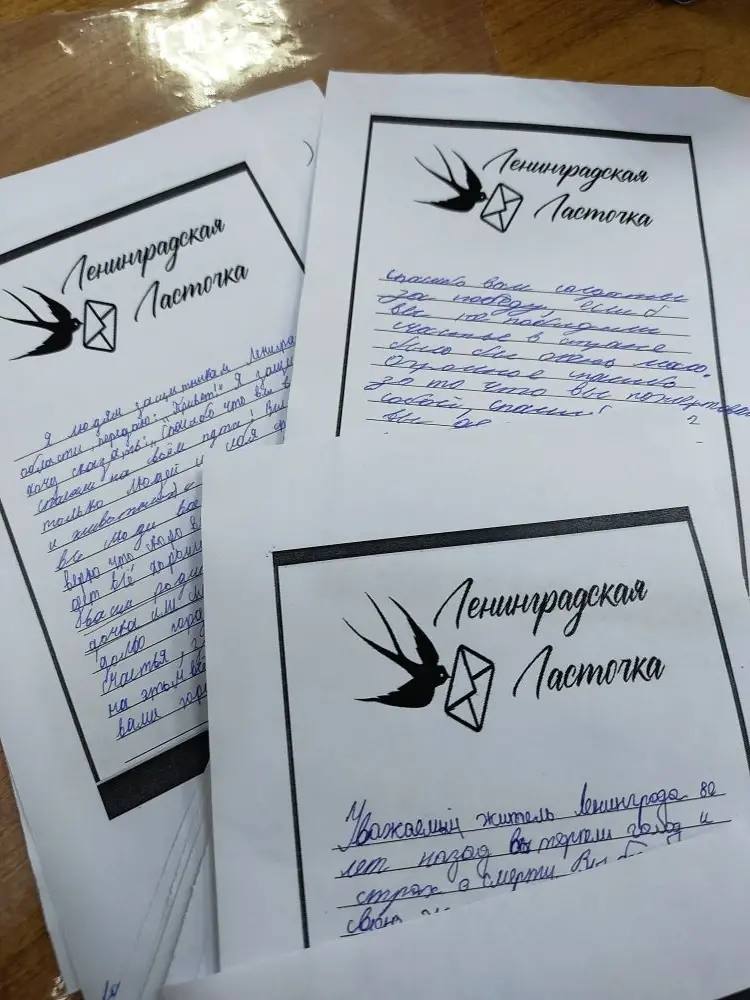 Ленинградская
Ласточка
Я людям защитникам Ленингра
области, передаю: „Привет!" Я
хочу сказать: „Спасибо что вы
спасали на своём пути! Вы
только людей и
и животных)
все люди
верю что
дет всё
ваша
дочка или
долго
счастья,
на этом
вами
Ленинградская
Ласточка
спасибо вам солдаты
за победу, если б
вы не победили
счастье в стране
было бы очень мало.
Огромное спасибо
за то что вы пожертвова
собой, спасли!
вы
Ленинградская
Ласточка
Уважаемый житель Ленинграда 80
лет назад вы терпели голод и
страх о смерти. Вы